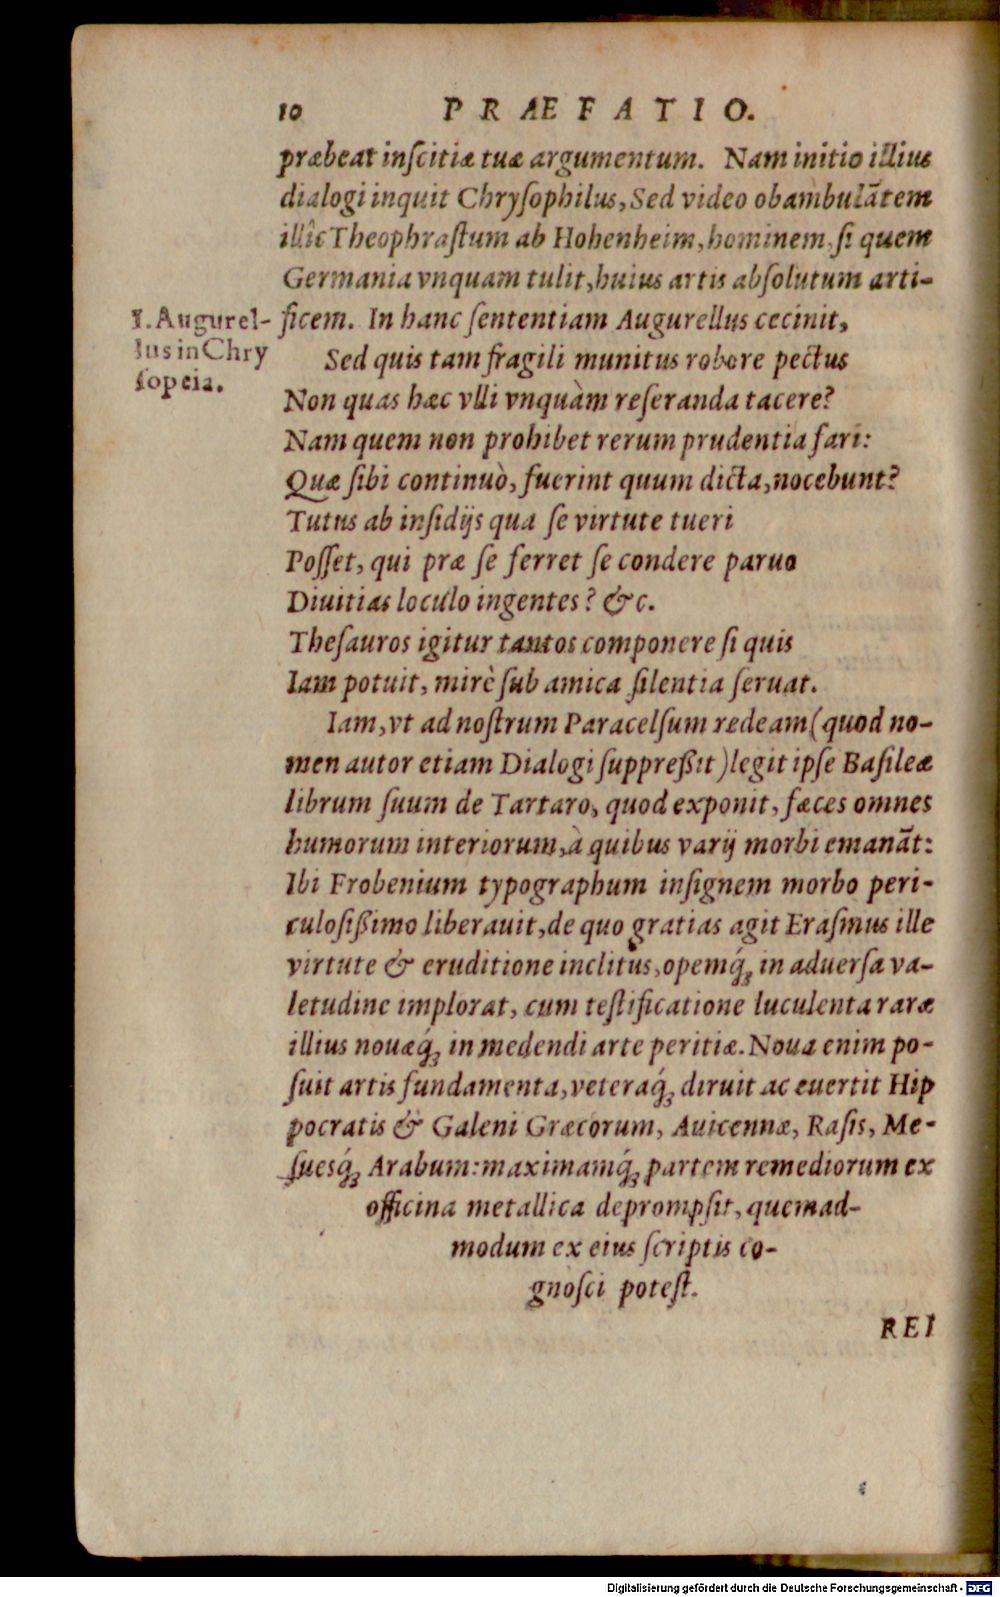 10 PRÆFATIO.
præbeat inſcitiæ tuæ argumentum. Nam initio illius
dialogi inquit Chryſophilus, Sed video obambulãtem
illîc Theophraſtum ab Hohenheim, hominem, ſi quem
Germania vnquam tulit, huius artis abſolutum arti-
ficem. In hanc ſententiam Augurellus cecinit,
I. Augurel-
lus in Chry
ſopeia.
Sed quis tam fragili munitus robore pectus
Non quas hæc vlli vnquàm reſeranda tacere?
Nam quem non prohibet rerum prudentia fari:
Quæ ſibi continuò, fuerint quum dicta, nocebunt?
Tutus ab inſidijs qua ſe virtute tueri
Poſſet, qui præ ſe ferret ſe condere paruo
Diuitias loculo ingentes? &c.
Theſauros igitur tantos componere ſi quis
Iam potuit, mirè ſub amica ſilentia ſeruat.
Iam, vt ad noſtrum Paracelſum redeam (quod no-
men autor etiam Dialogi ſuppreßit) legit ipſe Baſileæ
librum ſuum de Tartaro, quod exponit, fæces omnes
humorum interiorum, à quibus varij morbi emanãt:
Ibi Frobenium typographum inſignem morbo peri-
culoſißimo liberauit, de quo gratias agit Eraſmus ille
virtute & eruditione inclitus, opemq́ꝫ in aduerſa va-
letudine implorat, cum teſtificatione luculenta raræ
illius nouæq́ꝫ in medendi arte peritiæ. Noua enim po-
ſuit artis fundamenta, veteraq́ꝫ diruit ac euertit Hip
pocratis & Galeni Græcorum, Auicennæ, Raſis, Me-
ſuesq́ꝫ Arabum: maximamq́ꝫ partem remediorum ex
officina metallica deprompſit, quemad-
modum ex eius ſcriptis co-
gnoſci poteſt.
REI
Digitalisierung gefördert durch die Deutsche Forschungsgemeinschaft - DFG